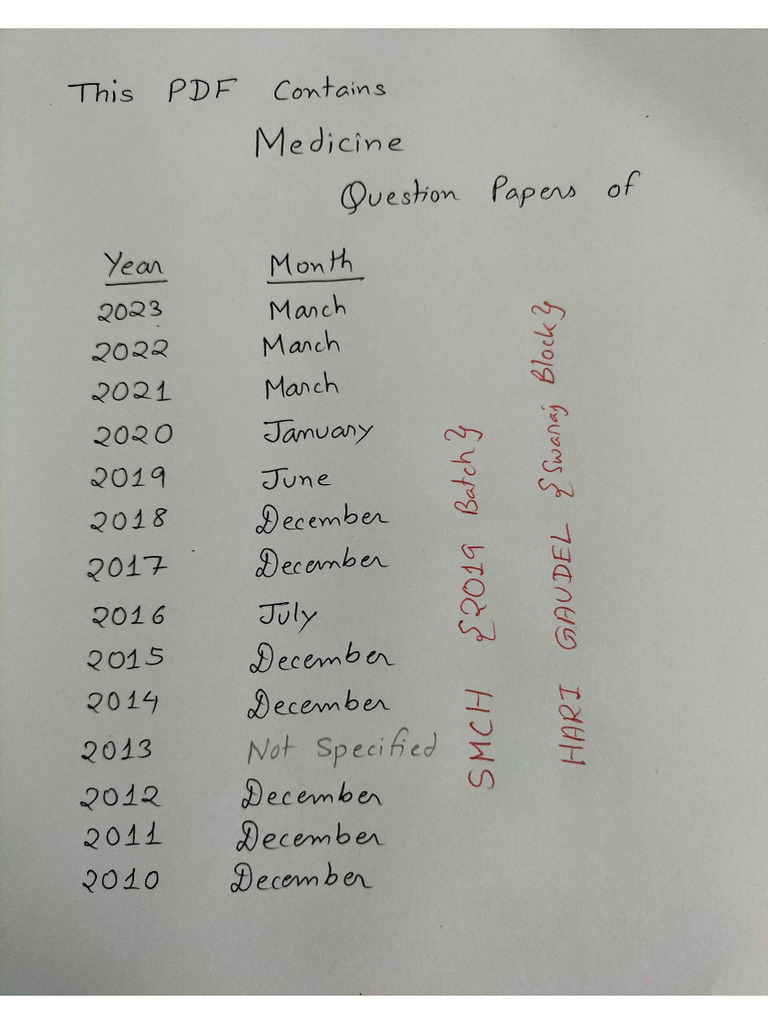 This PDF Contains
Medicine
Question Papers of
Year Month
2023 March
2022 March
2021 March
2020 January
2019 June
2018 December
2017 December
2016 July
2015 December
2014 December
2013 Not Specified
2012 December
2011 December
2010 December
SMCH {2019 Batch}
HARI GAUDEL {Swaraj Block}